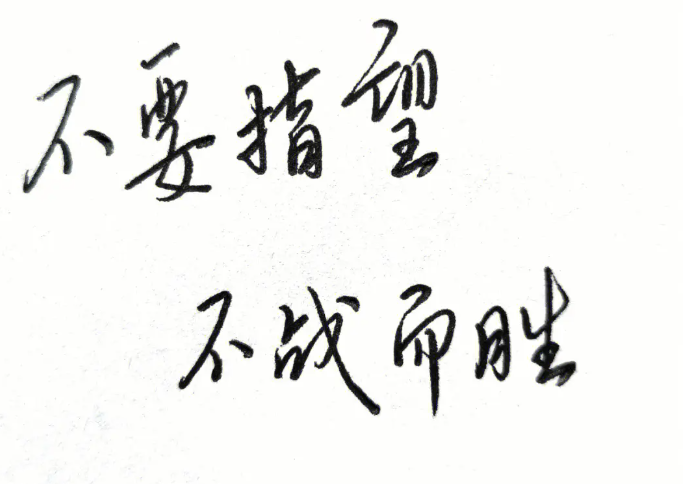 不要指望
不战而胜